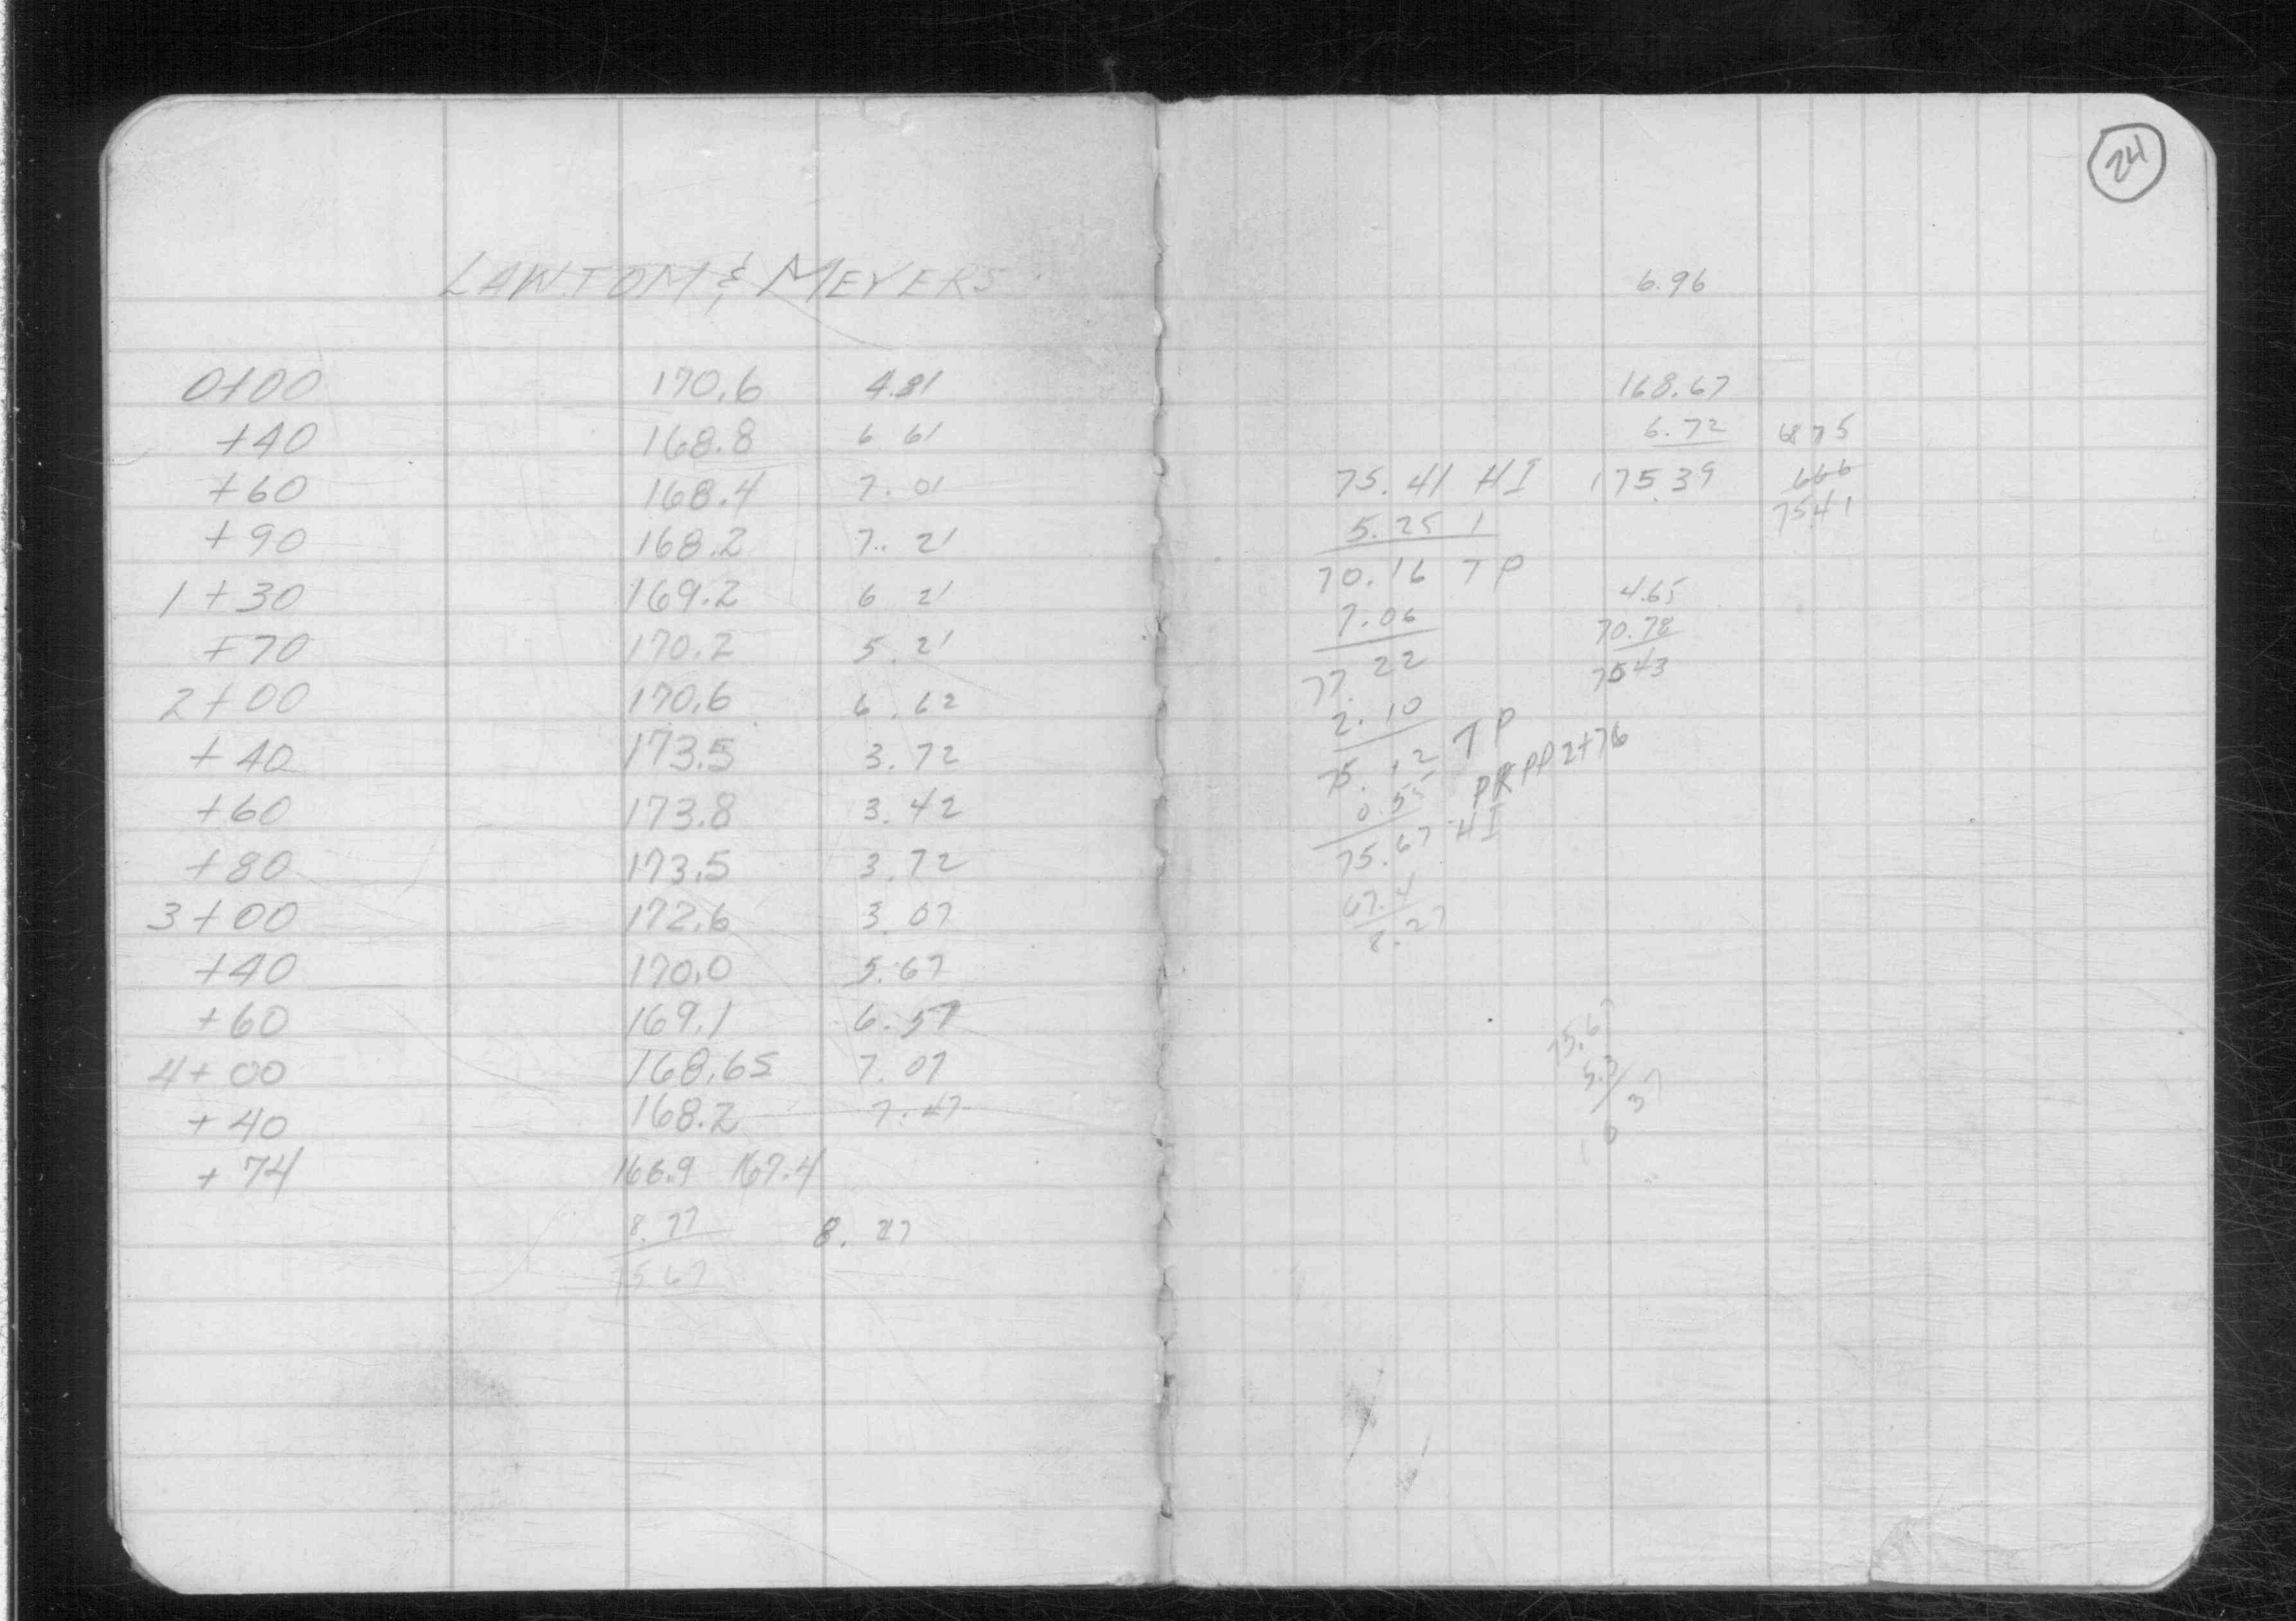 LAWTOM & MEYERS
0+00 170.6 4.81
+40 168.8 6 61
+60 168.4 7.01
+90 168.2 7.21
1+30 169.2 6 21
+70 170.2 5.21
2+00 170.6 6.62
+40 173.5 3.72
+60 173.8 3.42
+80 173.5 3.72
3+00 172.6 3.07
+40 170.0 5.67
+60 169.1 6.57
4+00 168.65 7.07
+40 168.2 7.47
+74 166.9 167.4
8.77 8.27
75.67
24
6.96
168.67
6.72 6875
75.41 HI 175.39 666
5.25 1 75.41
70.16 TP
7.06 4.65
77.22 70.78
2.10 75.43
75.12 TP
0.55 PP 2+76
75.67 HI
67.4
8.27
75.67
5.3
37